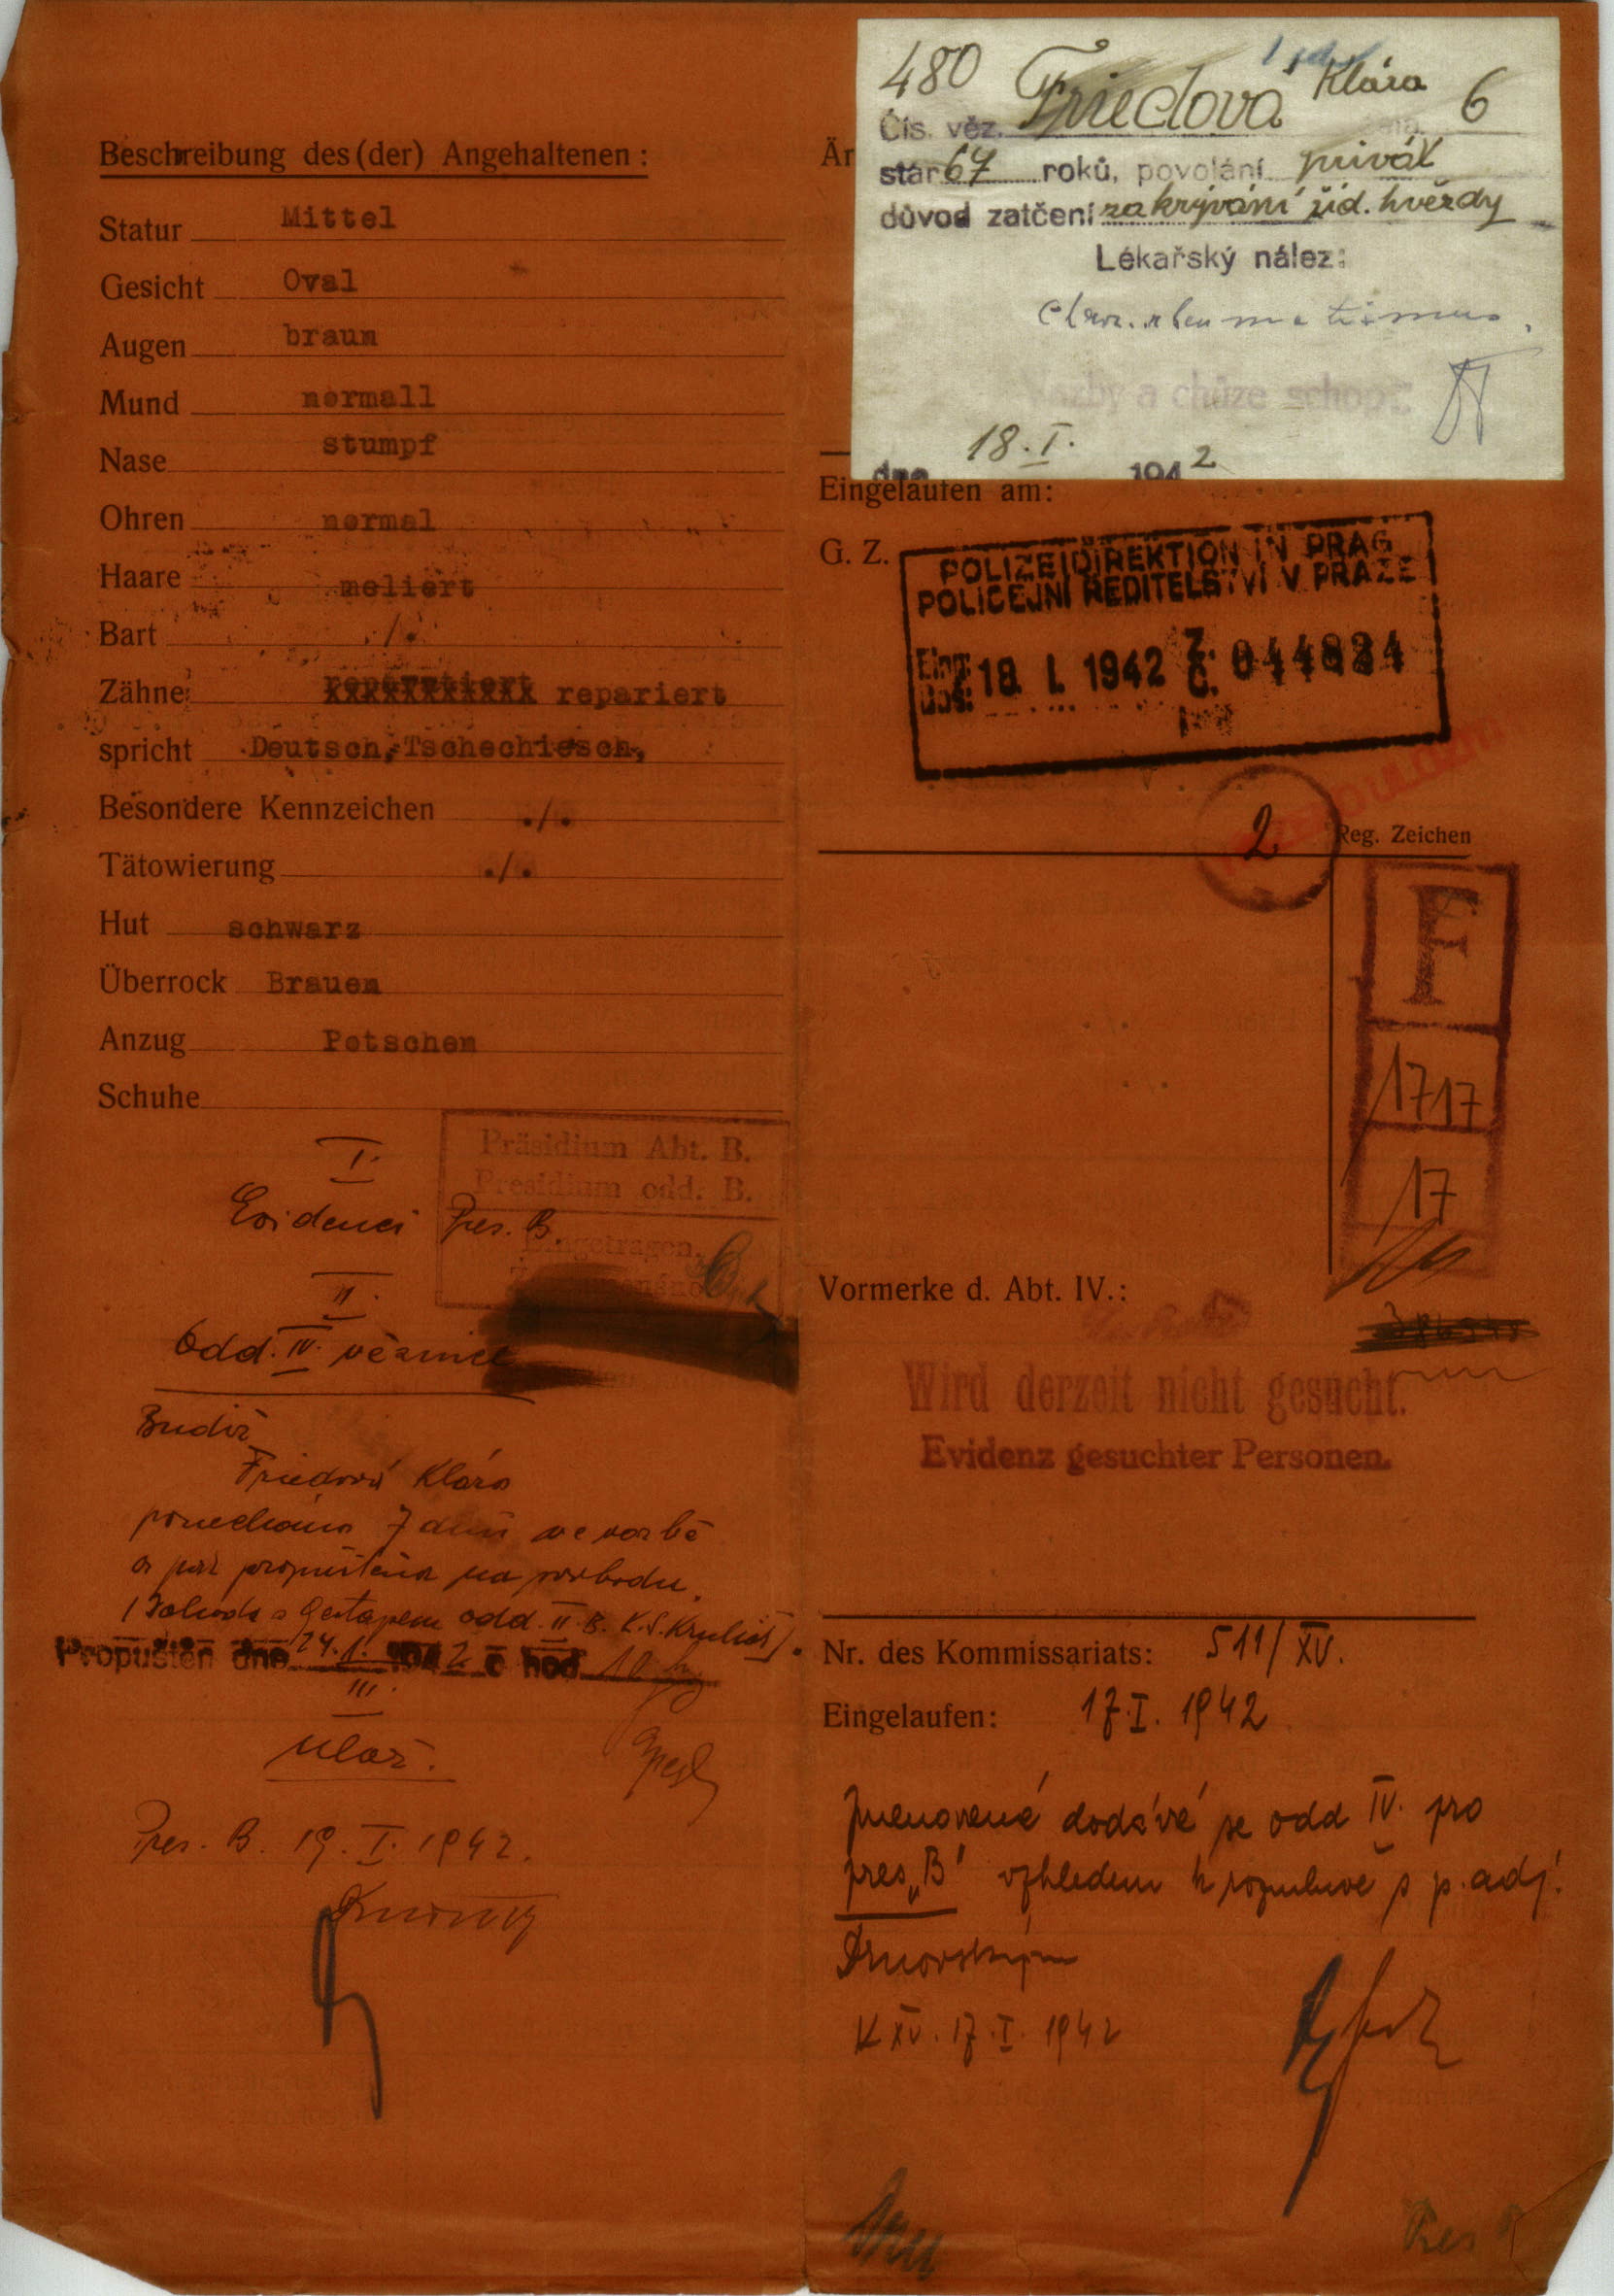 Beschreibung des (der) Angehaltenen :
Statur Mittel
Gesicht Oval
Augen braun
Mund normall
Nase stumpf
Ohren normal
Haare meliert
Bart ./.
Zähne repariert
spricht Deutsch, Tschechiesch,
Besondere Kennzeichen ./.
Tätowierung ./.
Hut schwarz
Überrock Brauen
Anzug Petschen
Schuhe
Präsidium Abt. B.
Presidium odd. B.
Eingetragen.
I.
Evidenci Pres. B.
II.
Odd. IV. věznice
Budiž
Friedová Klára
ponechána 7 dnů ve vazbě
a pak propuštěna na svobodu.
s Gestapem odd. II. B. K.S.
Propuštěn dne 24. I. 1942 o hod 10
III.
Pres. B. 19. I. 1942.
480 Friedová Klára 6
Čís. věz.
stár 67 roků, povolání privát
důvod zatčení zakrývání žid. hvězdy
Lékařský nález:
chron. rheumatismus.
vazby a chůze schop
dne 18. I. 1942
Är
Eingelaufen am:
G. Z.
POLIZEIDIREKTION IN PRAG
POLICEJNÍ ŘEDITELSTVÍ V PRAZE
Eing.
Doš.
18. I. 1942 Z. Č. 044824
2
Reg. Zeichen
F
1717
17
Vormerke d. Abt. IV.:
Wird derzeit nicht gesucht.
Evidenz gesuchter Personen.
Nr. des Kommissariats: 511/XV.
Eingelaufen: 17. I. 1942
Jmenovaná dodává se odd IV. pro
pres „B" vzhledem k rozmluvě s p. adj.
K XV. 17. I. 1942
Pres B